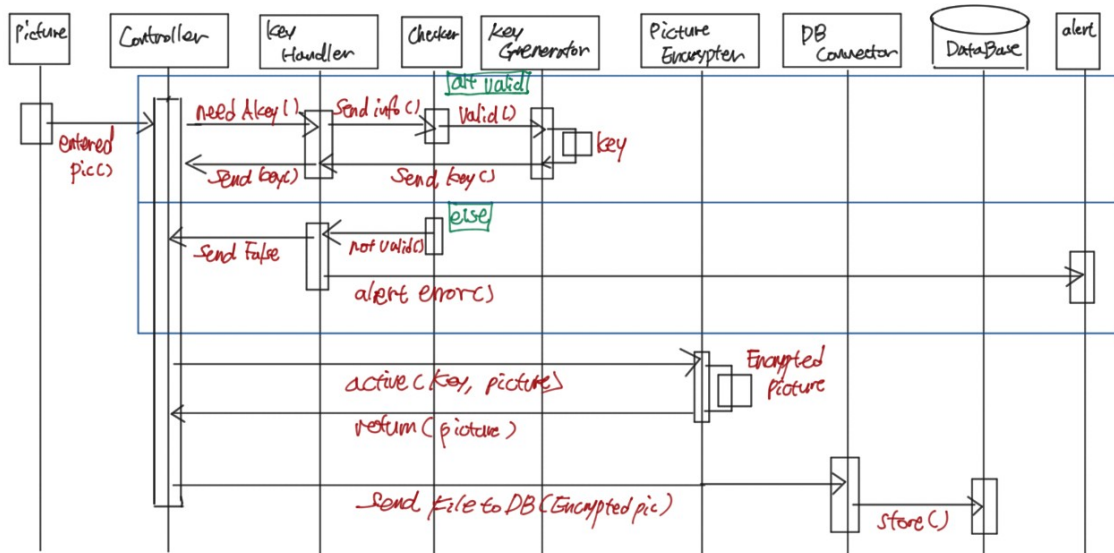 Picture
Controller
Key
Handler
Checker
Key
Generator
Picture
Encrypter
DB
Connector
DataBase
alert
alt valid
need Akey()
Send info()
Valid()
entered
pic()
key
Send key()
Send key()
else
Send False
not valid()
alert error()
active(key, picture)
Encrypted
picture
return(picture)
Send file to DB(Encrypted pic)
store()